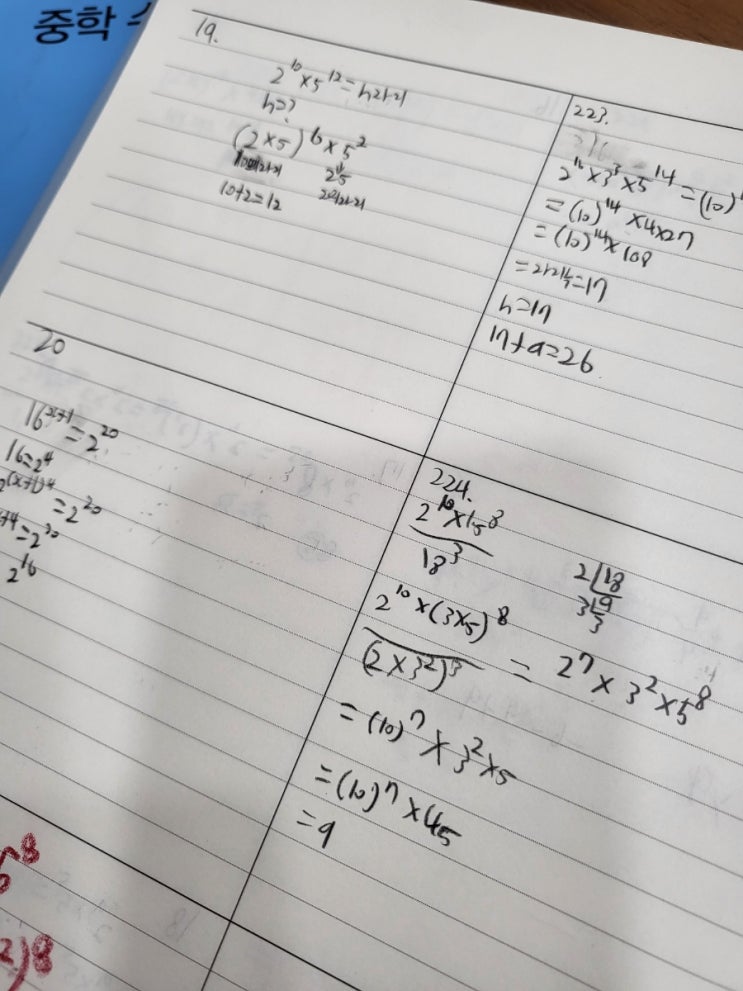 중학
19.
2^10 × 5^12 = n자리
n=?
(2×5)^6 × 5^2
10+2=12
223.
2^16 × 3^3 × 5^14 = (10)
= (10)^14 × 4×27
= (10)^14 × 108
n=17
17+a=26
20
16^(x+1) = 2^20
16=2^4
2^(x+1)4 = 2^20
2^16
224.
2^10 × 15^8
18^3
2 18
3 9
3
2^10 × (3×5)^8
(2×3^2)^3 = 2^7 × 3^2 × 5^8
= (10)^7 × 3^2 × 5
= (10)^7 × 45
= 9